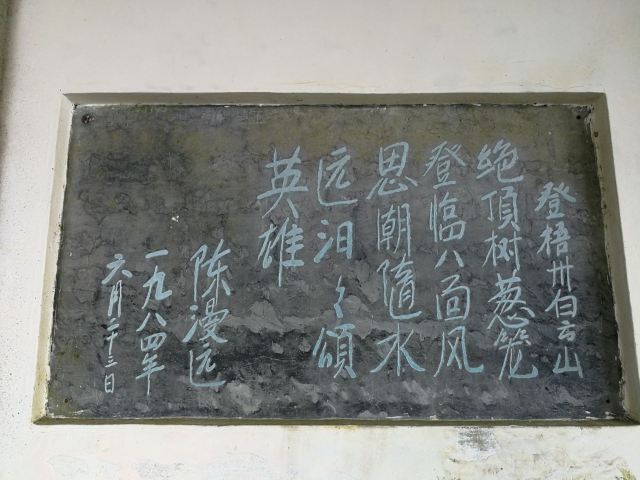 登梧州白云山
絶頂树葱笼
登临八面风
思潮隨水
远汨々頌
英雄
陈漫远
一九八四年
六月二十三日